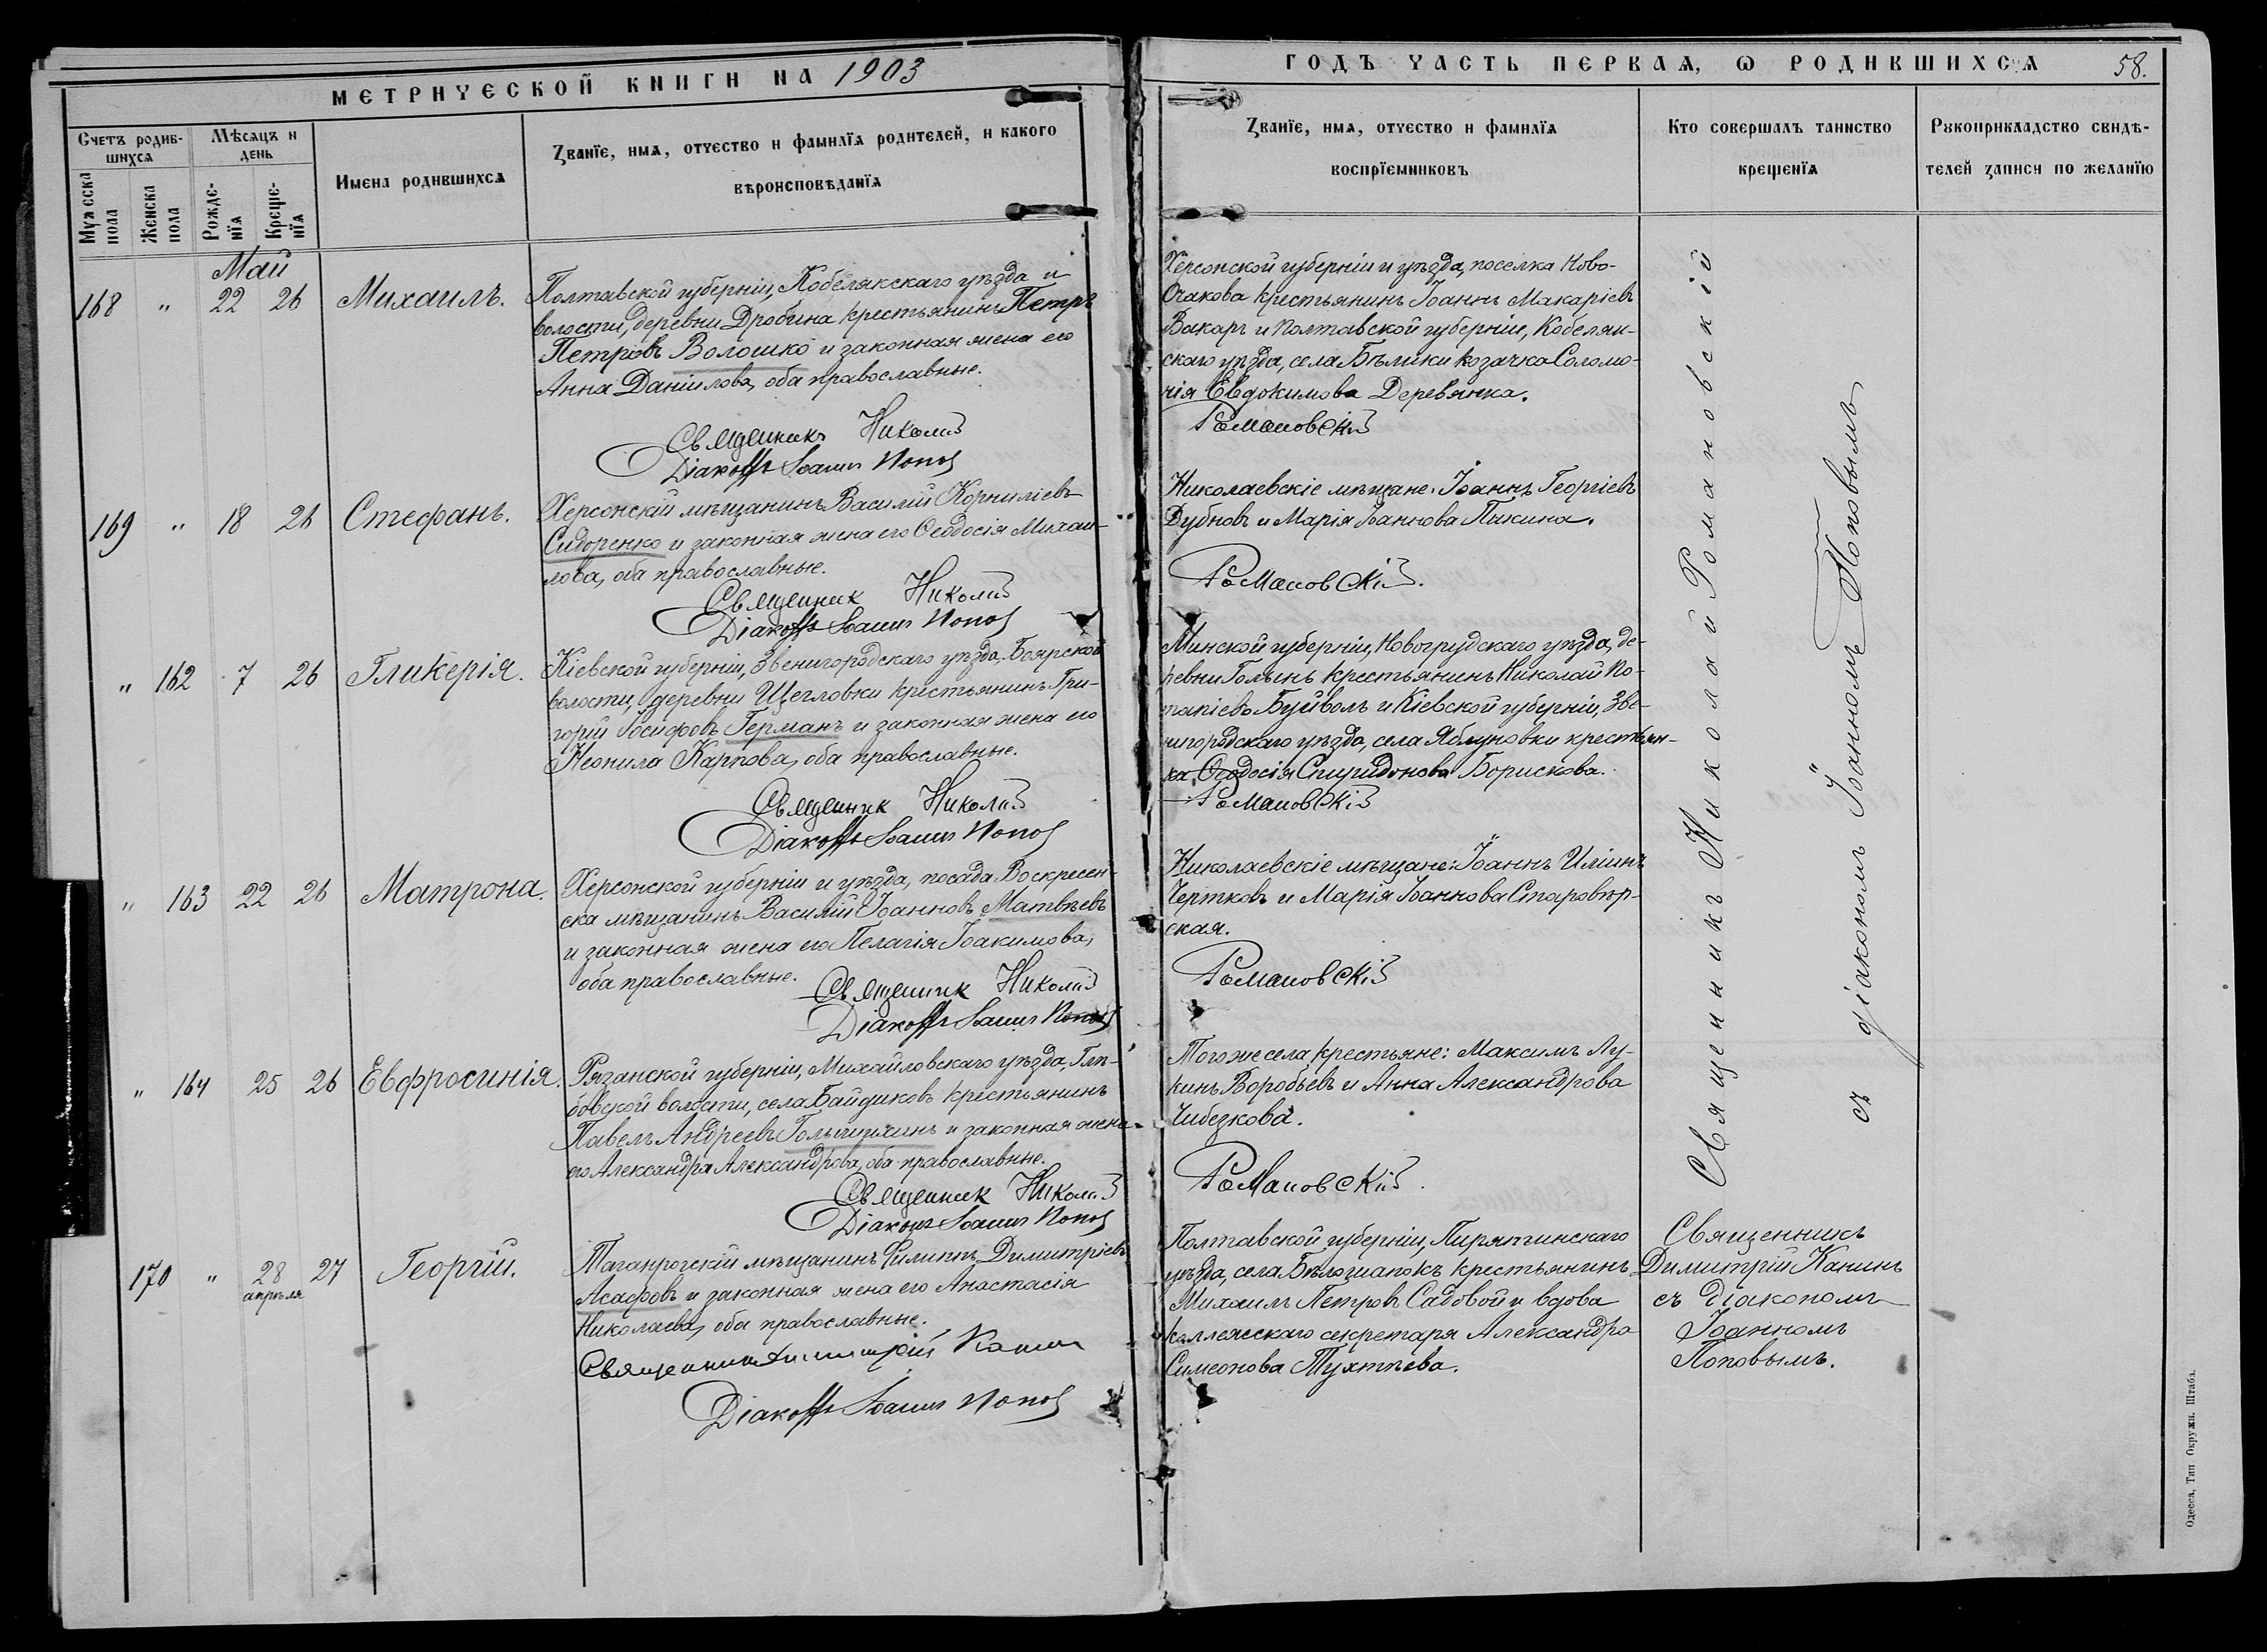 МЕТРИЧЕСКОЙ КНИГИ НА 1903
Счетъ родив-
шихся
Мѣсяцъ и
день
Имена родившихся
Званїе, имя, отчество и фамилїя родителей, и какого
вѣроисповѣданїя
Мужеска
пола
Женска
пола
Рожде-
нїя
Креще-
нїя
Май
168 " 22 26 Михаилъ.
Полтавской губерніи, Кобелякскаго уѣзда и
волости, деревни Дробина крестьянинъ Петръ
Петровъ Волошко и законная жена его
Анна Даніилова, оба православные.
Священникъ Николай
Діаконъ Іоаннъ Попов
169 " 18 26 Стефанъ.
Херсонскій мѣщанинъ Василій Корниліевъ
Сидоренко и законная жена его Ѳеодосія Михаи-
лова, оба православные.
Священник Николай
Діаконъ Іоаннъ Попов
" 162 7 26 Гликерія.
Кіевской губерніи, Звенигородскаго уѣзда, Боярской
волости, деревни Щегловки крестьянинъ Гри-
горій Іосифовъ Германъ и законная жена его
Неонила Карпова, оба православные.
Священник Николай
Діаконъ Іоаннъ Попов
" 163 22 26 Матрона.
Херсонской губерніи и уѣзда, посада Воскресен-
ска мѣщанинъ Василій Іоанновъ Матвѣевъ
и законная жена его Пелагія Іоакимова,
оба православные.
Священник Николай
Діаконъ Іоаннъ Попов
" 164 25 26 Евфросинія.
Рязанской губерніи, Михайловскаго уѣзда, Глѣ-
бовской волости, села Байдиковъ крестьянинъ
Павелъ Андреевъ и законная жена
его Александра Александрова, оба православные.
Священник Николай
Діаконъ Іоаннъ Попов
170 " 28 27 Георгій.
апрѣля
Таганрогскій мѣщанинъ Филиппъ Димитріевъ
Асафовъ и законная жена его Анастасія
Николаева, оба православные.
Священникъ Димитрій Канин
Діаконъ Іоаннъ Попов
ГОДЪ ЧАСТЬ ПЕРВАЯ, Ѡ РОДИВШИХСЯ 58.
Званїе, имя, отчество и фамилїя
воспрїемниковъ
Кто совершалъ таинство
крещенїя
Рукоприкладство свидѣ-
телей записи по желанїю
Херсонской губерніи и уѣзда, поселка Ново-
Очакова крестьянинъ Іоаннъ Макаріевъ
Вакаръ и Полтавской губерніи, Кобеляк-
скаго уѣзда, села Бѣлики козачка Соломо-
нія Евдокимова Деревянка.
Романовскій
Николаевскіе мѣщане: Іоаннъ Георгіевъ
Дубновъ и Марія Іоаннова Пикина.
Романовскій.
Минской губерніи, Новогрудскаго уѣзда, де-
ревни Голынь крестьянинъ Николай По-
тапіевъ Буйволъ и Кіевской губерніи, Зве-
нигородскаго уѣзда, села Яблуновки крестьян-
ка Ѳеодосія Спиридонова Борискова.
Романовскій
Николаевскіе мѣщане: Іоаннъ Иліинъ
Чертковъ и Марія Іоаннова Старовѣр-
ская.
Романовскій
Того же села крестьяне: Максимъ Лу-
кинъ Воробьевъ и Анна Александрова
Чибезкова.
Романовскій.
Полтавской губерніи, Пирятинскаго
уѣзда, села крестьянинъ
Михаилъ Петровъ Садовой и вдова
коллежскаго секретаря Александра
Симеонова Тухтѣева.
Священникъ Николай Романовскій
съ діакономъ Іоанномъ Поповымъ
Священникъ
Димитрій Канинъ
съ діакономъ
Іоанномъ
Поповымъ.
Одесса, Тип Окружн. Штаба.